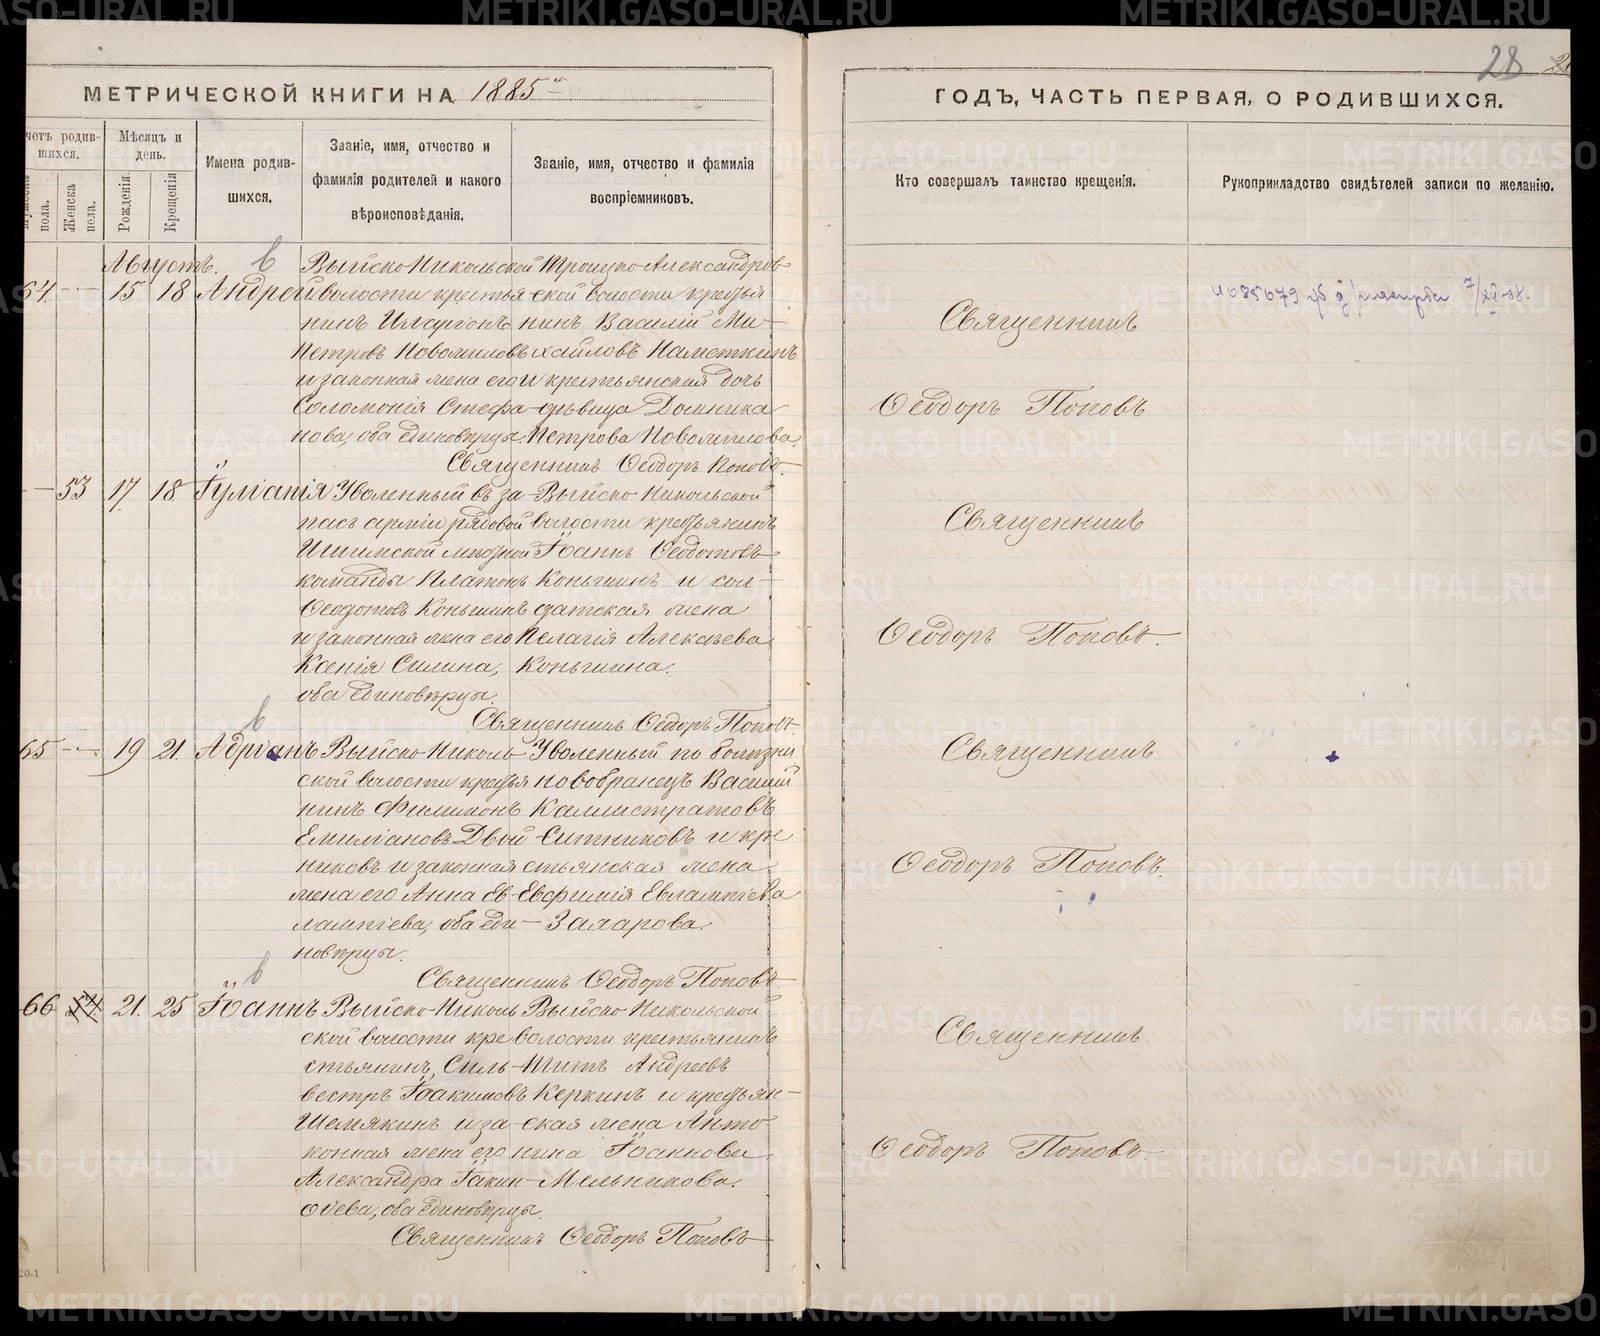 28
МЕТРИЧЕСКОЙ КНИГИ НА 1885й
ГОДЪ, ЧАСТЬ ПЕРВАЯ, О РОДИВШИХСЯ.
четъ родив-
шихся.
Женска
пола.
пола.
Мѣсяцъ и
день.
Рожденія.
Крещенія
Имена родив-
шихся.
Званіе, имя, отчество и
фамилія родителей и какого
вѣроисповѣданія.
Званіе, имя, отчество и фамилія
воспріемниковъ.
Кто совершалъ таинство крещенія.
Рукоприкладство свидѣтелей записи по желанію.
Августъ.
64. — 15 18 Андрей
Выйско-Никольской
волости крестья
нинъ Иларіонъ
Петровъ Новожиловъ
и законная жена его
Соломонія Стефа-
нова, оба единовѣрцы.
Троицко-Александров
ской волости крестья
нинъ Василій Ми-
хайловъ Наметкинъ
и крестьянская дочь
дѣвица Домника
Петрова Новожилова.
Священникъ Ѳеодоръ Поповъ.
Священникъ
Ѳеодоръ Поповъ
— 53 17. 18 Іуліанія
Уволенный въ за-
пасъ арміи рядовой
Ишимской мѣстной
команды Платонъ
Ѳеодотовъ Коньшинъ
и законная жена его
Ксенія Силина,
оба единовѣрцы.
Выйско-Никольской
волости крестьянинъ
Іоаннъ Ѳеодотовъ
Коньшинъ и сол-
датская жена
Пелагія Алексѣева
Коньшина.
Священникъ Ѳеодоръ Поповъ.
Священникъ
Ѳеодоръ Поповъ.
65 — 19 21. Адріанъ
Выйско-Николь
ской волости крестья
нинъ Филимонъ
Емиліановъ Двой
никовъ и законная
жена его Анна Ев-
лампіева, оба еди-
новѣрцы.
Уволенный по болѣзни
новобранецъ Василій
Каллистратовъ
Ситниковъ и кре
стьянская жена
Евфимія Евлампіева
Захарова.
Священникъ Ѳеодоръ Поповъ
Священникъ
Ѳеодоръ Поповъ.
66 54 21. 25 Іоаннъ
Выйско-Николь
ской волости кре
стьянинъ, Силь-
вестръ Іоакимовъ
Шемякинъ и за-
конная жена его
Александра Іакин-
ѳіева, оба единовѣрцы.
Выйско-Никольской
волости крестьянинъ
Титъ Андреевъ
Керкинъ и крестьян-
ская жена Анто
нина Іоаннова
Мельникова.
Священникъ Ѳеодоръ Поповъ
Священникъ
Ѳеодоръ Поповъ.
METRIKI.GASO-URAL.RU